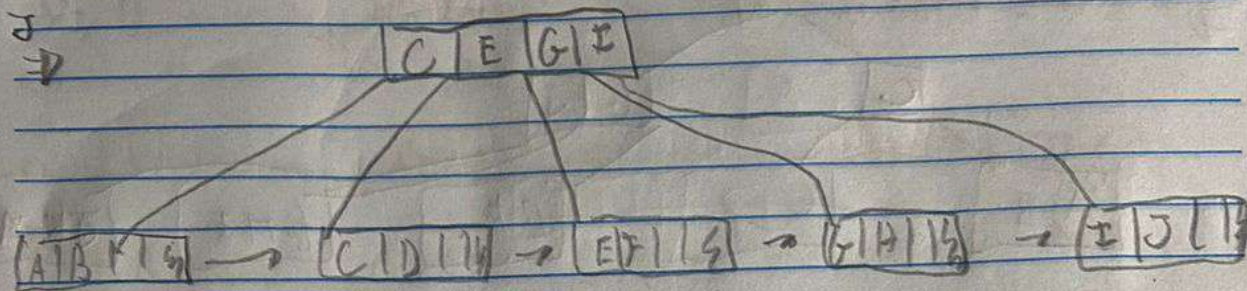 J
⇒
C | E | G | I
A | B | | → C | D | | → E | F | | → G | H | | → I | J | |